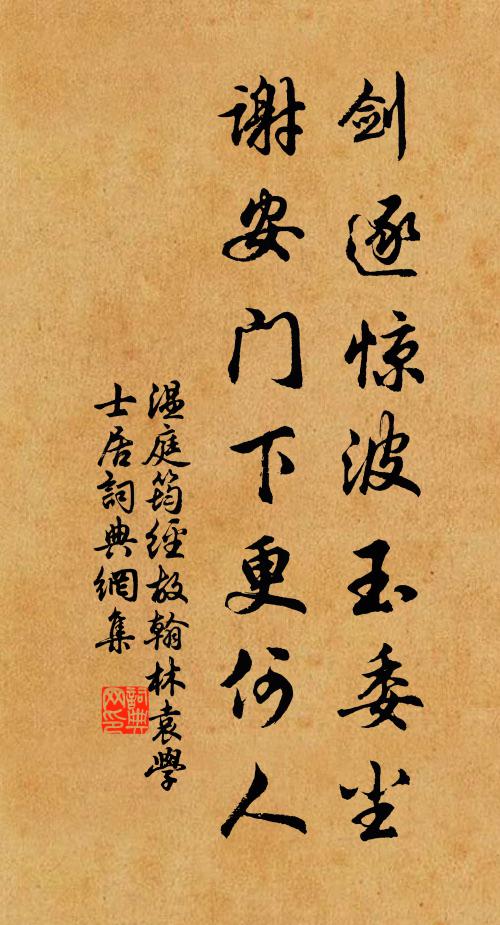 剑逐惊波玉委尘
谢安门下更何人
温庭筠經故翰林袁學
士居詞典網集
詞典网印